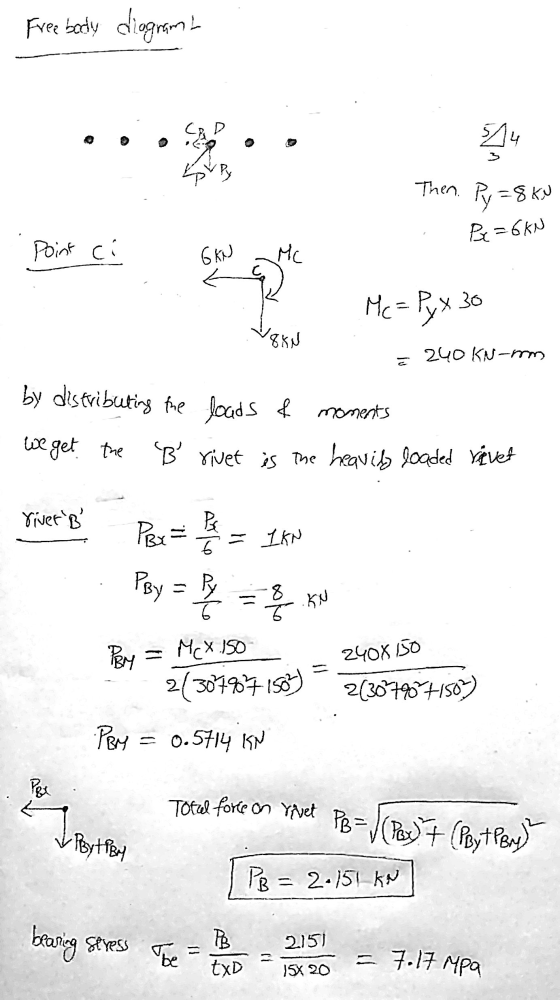 Free body diagram:-
C R D
P Py
5 4
3
Then, Py = 8 KN
Px = 6 KN
Point C :
6 KN Mc
C
8 KN
Mc = Py x 30
= 240 KN-mm
by distributing the loads & moments
we get the 'B' rivet is the heavily loaded rivet
rivet 'B'
PBx = Px/6 = 1 KN
PBy = Py/6 = 8/6 KN
PBM = Mc x 150 / 2(30²+90²+150²) = 240 x 150 / 2(30²+90²+150²)
PBM = 0.5714 KN
PBx
PBy+PBM
Total force on rivet PB = √(PBx)² + (PBy+PBM)²
PB = 2.151 KN
bearing stress σbe = PB / txD = 2151 / 15x20 = 7.17 MPa